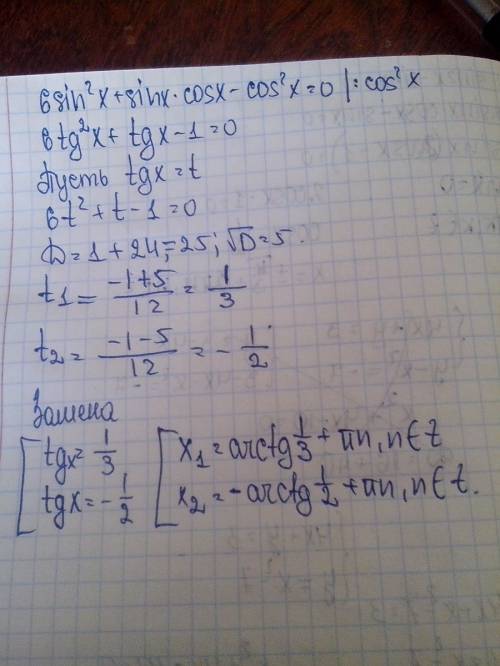 6sin²x+sinx·cosx-cos²x=0 |:cos²x
6tg²x+tgx-1=0
Пусть tgx=t
6t²+t-1=0
D=1+24=25; √D=5.
t1=(-1+5)/12=1/3
t2=(-1-5)/12=-1/2
Замена
[tgx=1/3 [x₁=arctg 1/3+πn, n∈Z
[tgx=-1/2 [x₂=-arctg 1/2+πn, n∈Z.